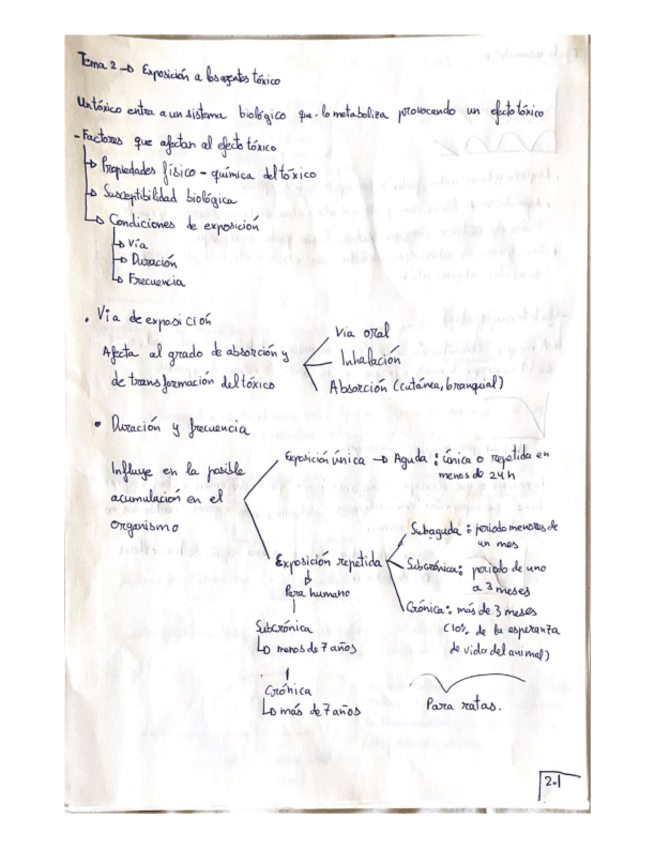 Tema 2 → Exposición a los agentes tóxico
Un tóxico entra a un sistema biológico que lo metaboliza provocando un efecto tóxico
- Factores que afectan al efecto tóxico
↳ Propiedades físico-química del tóxico
↳ Susceptibilidad biológica
↳ Condiciones de exposición
↳ Vía
↳ Duración
↳ Frecuencia
• Via de exposición
Afecta al grado de absorción y
de transformación del tóxico
Via oral
Inhalación
Absorción (cutánea, branquial)
• Duración y frecuencia
Influye en la posible
acumulación en el
organismo
Exposición única → Aguda: única o repetida en
menos de 24h
Exposición repetida
Subaguda: periodo menores de
un mes
Subcrónica: periodo de uno
a 3 meses
Crónica: más de 3 meses
(10% de la esperanza
de vida del animal)
Para ratas.
Para humano
Subcrónica
↳ menos de 7 años
Crónica
↳ más de 7 años
2.1